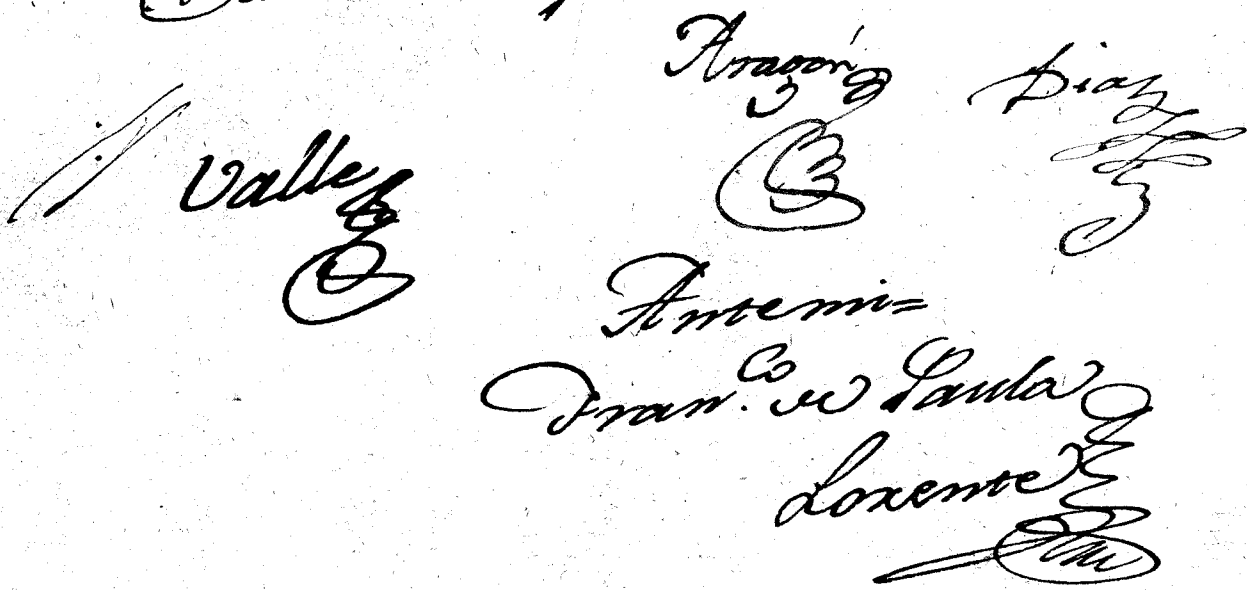 Aragón Diaz
Valle
Antemi=
Fran.co de Paula
Lorente